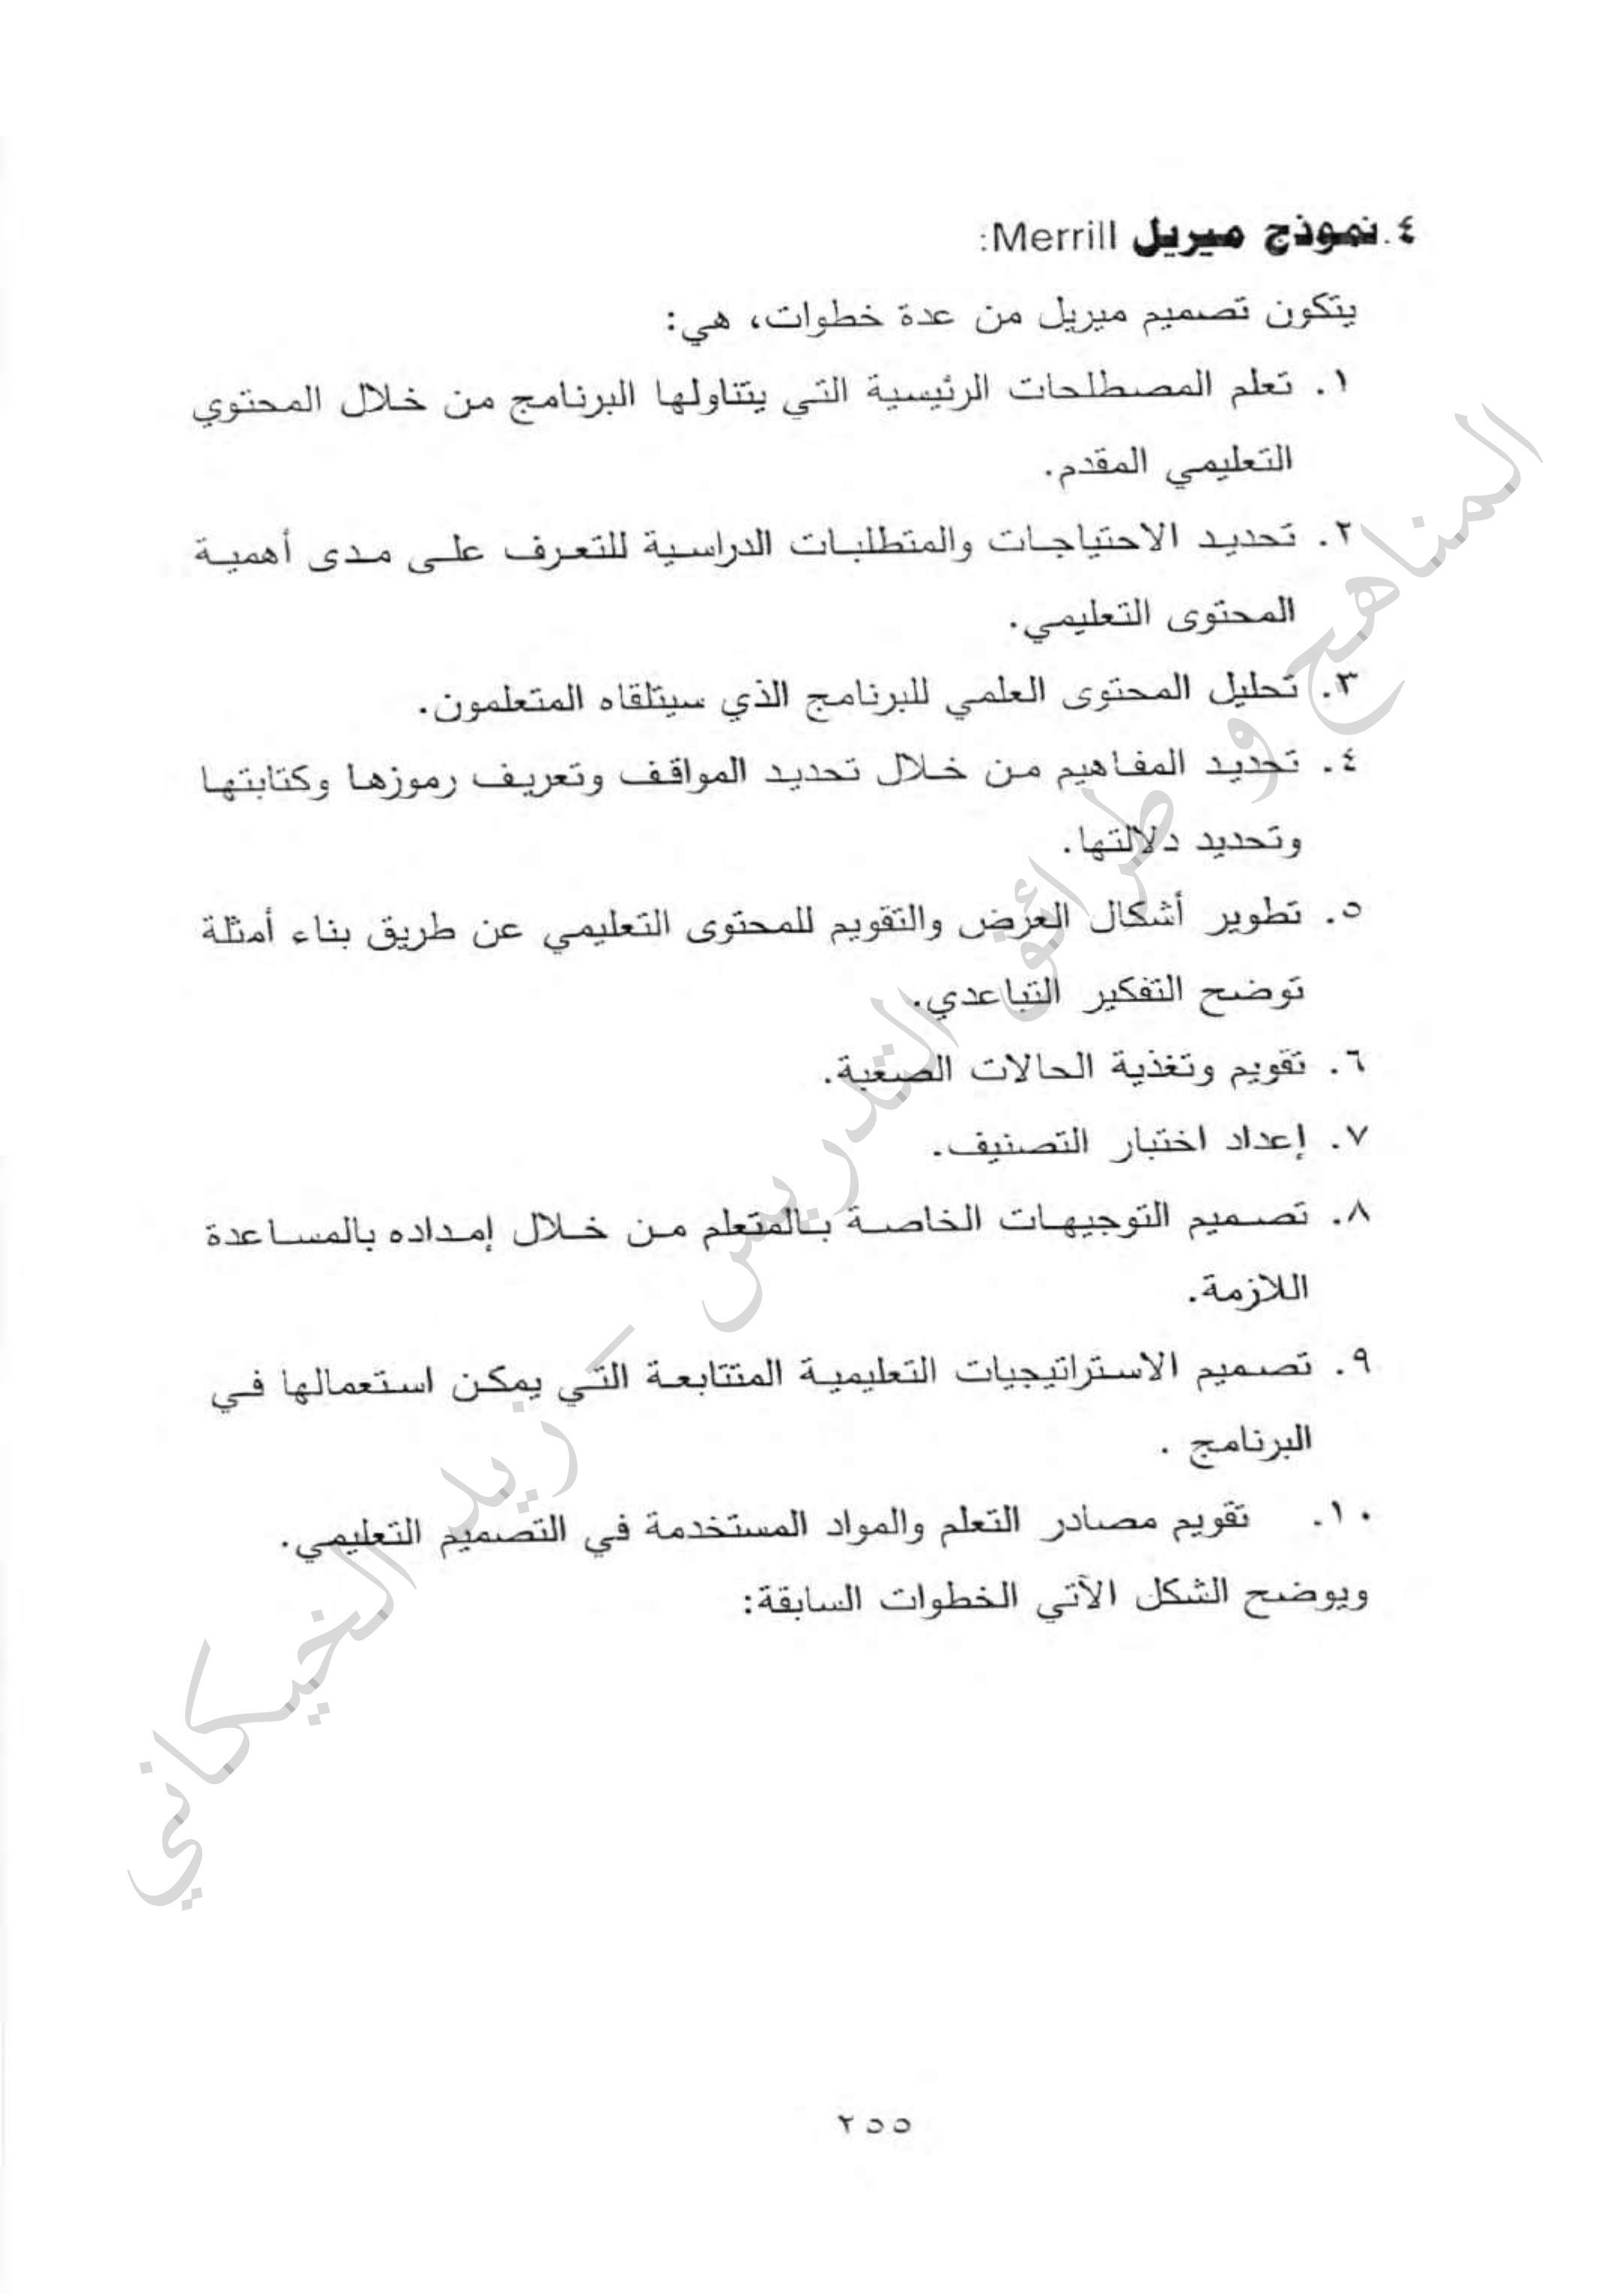 ٤. نموذج ميريل Merrill:
يتكون تصميم ميريل من عدة خطوات، هي:
١. تعلم المصطلحات الرئيسية التي يتناولها البرنامج من خلال المحتوي
التعليمي المقدم.
٢. تحديد الاحتياجات والمتطلبات الدراسية للتعرف على مدى أهمية
المحتوى التعليمي.
٣. تحليل المحتوى العلمي للبرنامج الذي سيتلقاه المتعلمون.
٤. تحديد المفاهيم من خلال تحديد المواقف وتعريف رموزها وكتابتها
وتحديد دلالتها.
٥. تطوير أشكال العرض والتقويم للمحتوى التعليمي عن طريق بناء أمثلة
توضح التفكير التباعدي.
٦. تقويم وتغذية الحالات الصعبة.
٧. إعداد اختبار التصنيف.
٨. تصميم التوجيهات الخاصة بالمتعلم من خلال إمداده بالمساعدة
اللازمة.
٩. تصميم الاستراتيجيات التعليمية المتتابعة التي يمكن استعمالها في
البرنامج .
١٠. تقويم مصادر التعلم والمواد المستخدمة في التصميم التعليمي.
ويوضح الشكل الآتي الخطوات السابقة:
٢٥٥
المناهج و طرائق التدريس - زيد الخيكاني